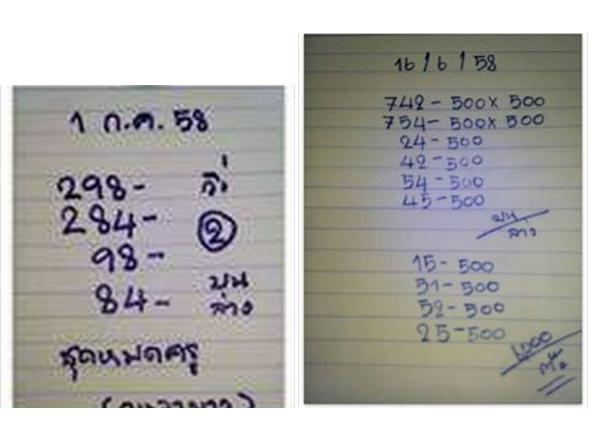 1 ก.ค. 58
298-
284- ②
98-
84- บน
ล่าง
ชุดหมดครู
16/6/58
742-500x500
754-500x500
24-500
42-500
54-500
45-500
บน
ล่าง
15-500
51-500
52-500
25-500